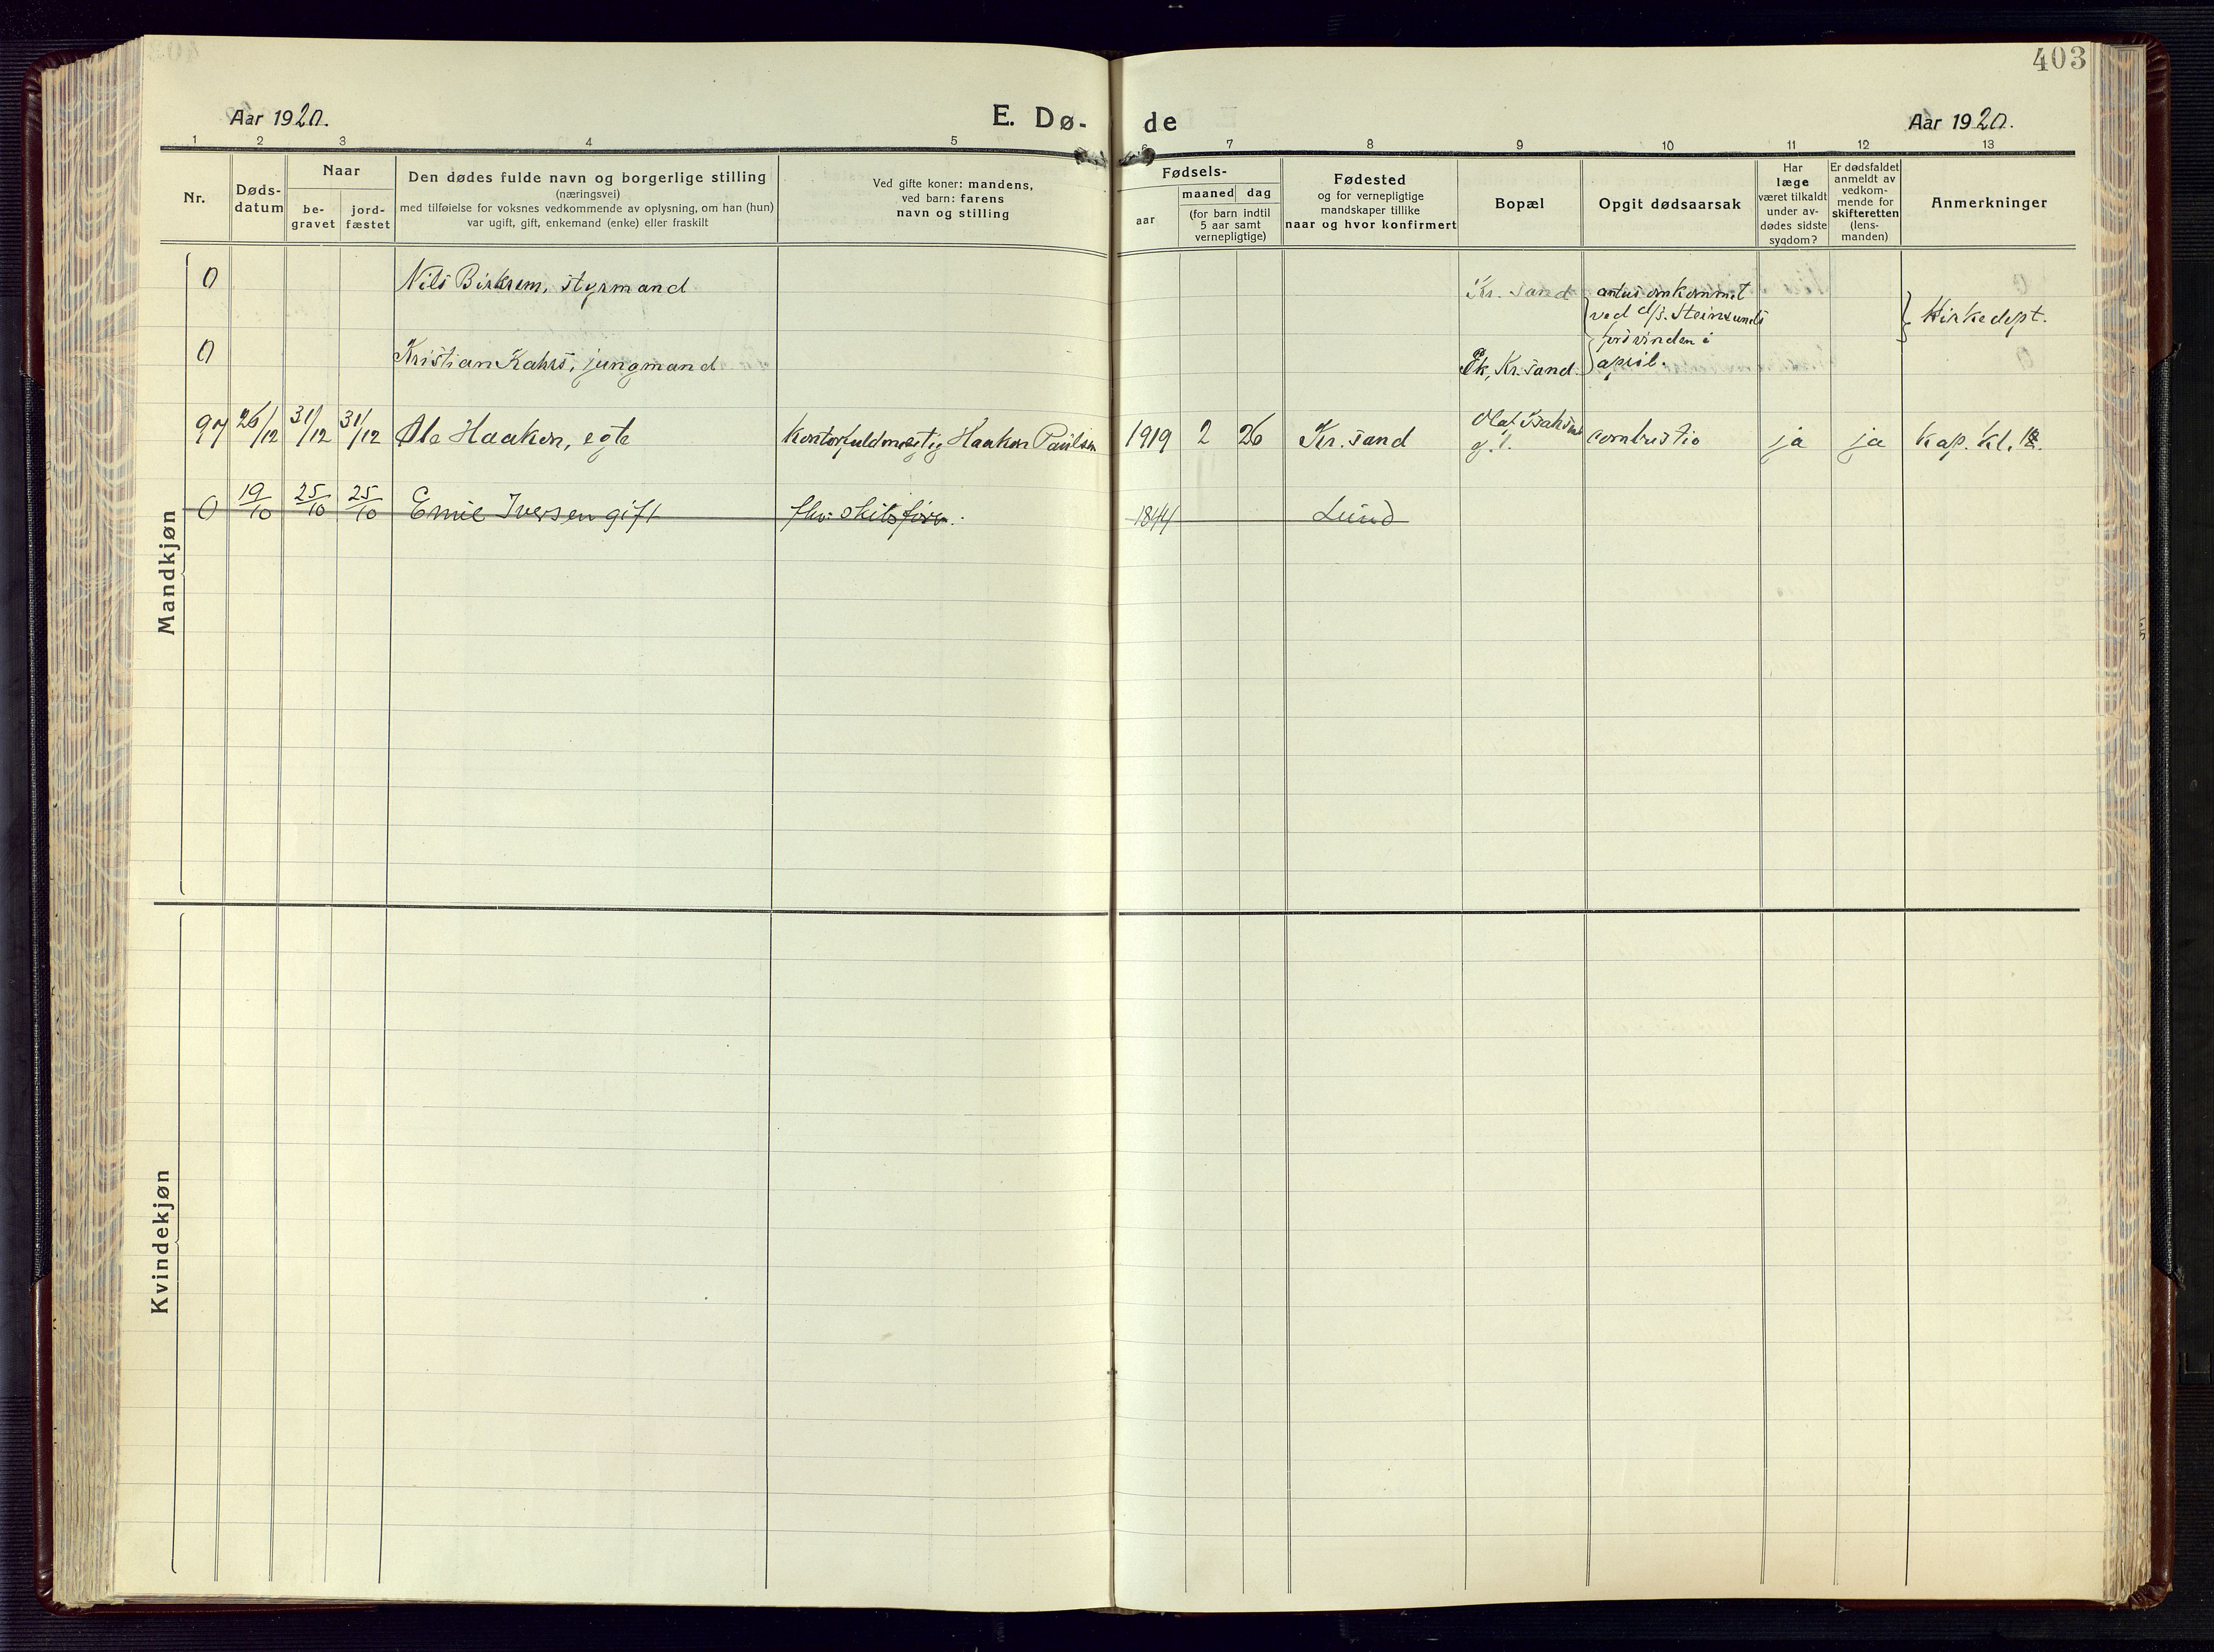 403
Aar 1920. E. Dø- de Aar 1920.
1 2 3 4 5 6 7 8 9 10 11 12 13
Nr.
Døds-
datum
Naar
be-
gravet
jord-
fæstet
Den dødes fulde navn og borgerlige stilling
(næringsvei)
med tilføielse for voksnes vedkommende av oplysning, om han (hun)
var ugift, gift, enkemand (enke) eller fraskilt
Ved gifte koner: mandens,
ved barn: farens
navn og stilling
Fødsels-
aar
maaned dag
(for barn indtil
5 aar samt
vernepligtige)
Fødested
og for vernepligtige
mandskaper tillike
naar og hvor konfirmert
Bopæl
Opgit dødsaarsak
Har
læge
været tilkaldt
under av-
dødes sidste
sygdom?
Er dødsfaldet
anmeldt av
vedkom-
mende for
skifteretten
(lens-
manden)
Anmerkninger
Mandkjøn
0 Nils Birkrem, styrmand Kr. sand antas omkommet
ved d/s. Steinsunds
forsvinden i
april.
Kirkedept.
0 Kristian Kahrs, jungmand Kr. sand
97 26/12 31/12 31/12 Ole Haakon, egte Kontorfuldmegtig Haakon Paulsen 1919 2 26 Kr. sand Olaf
g. 1. combustio ja ja Kap. Kl.
0 19/10 25/10 25/10 Emil Iversen gift fhv. skibsfører. 1844 Lund
Kvindekjøn